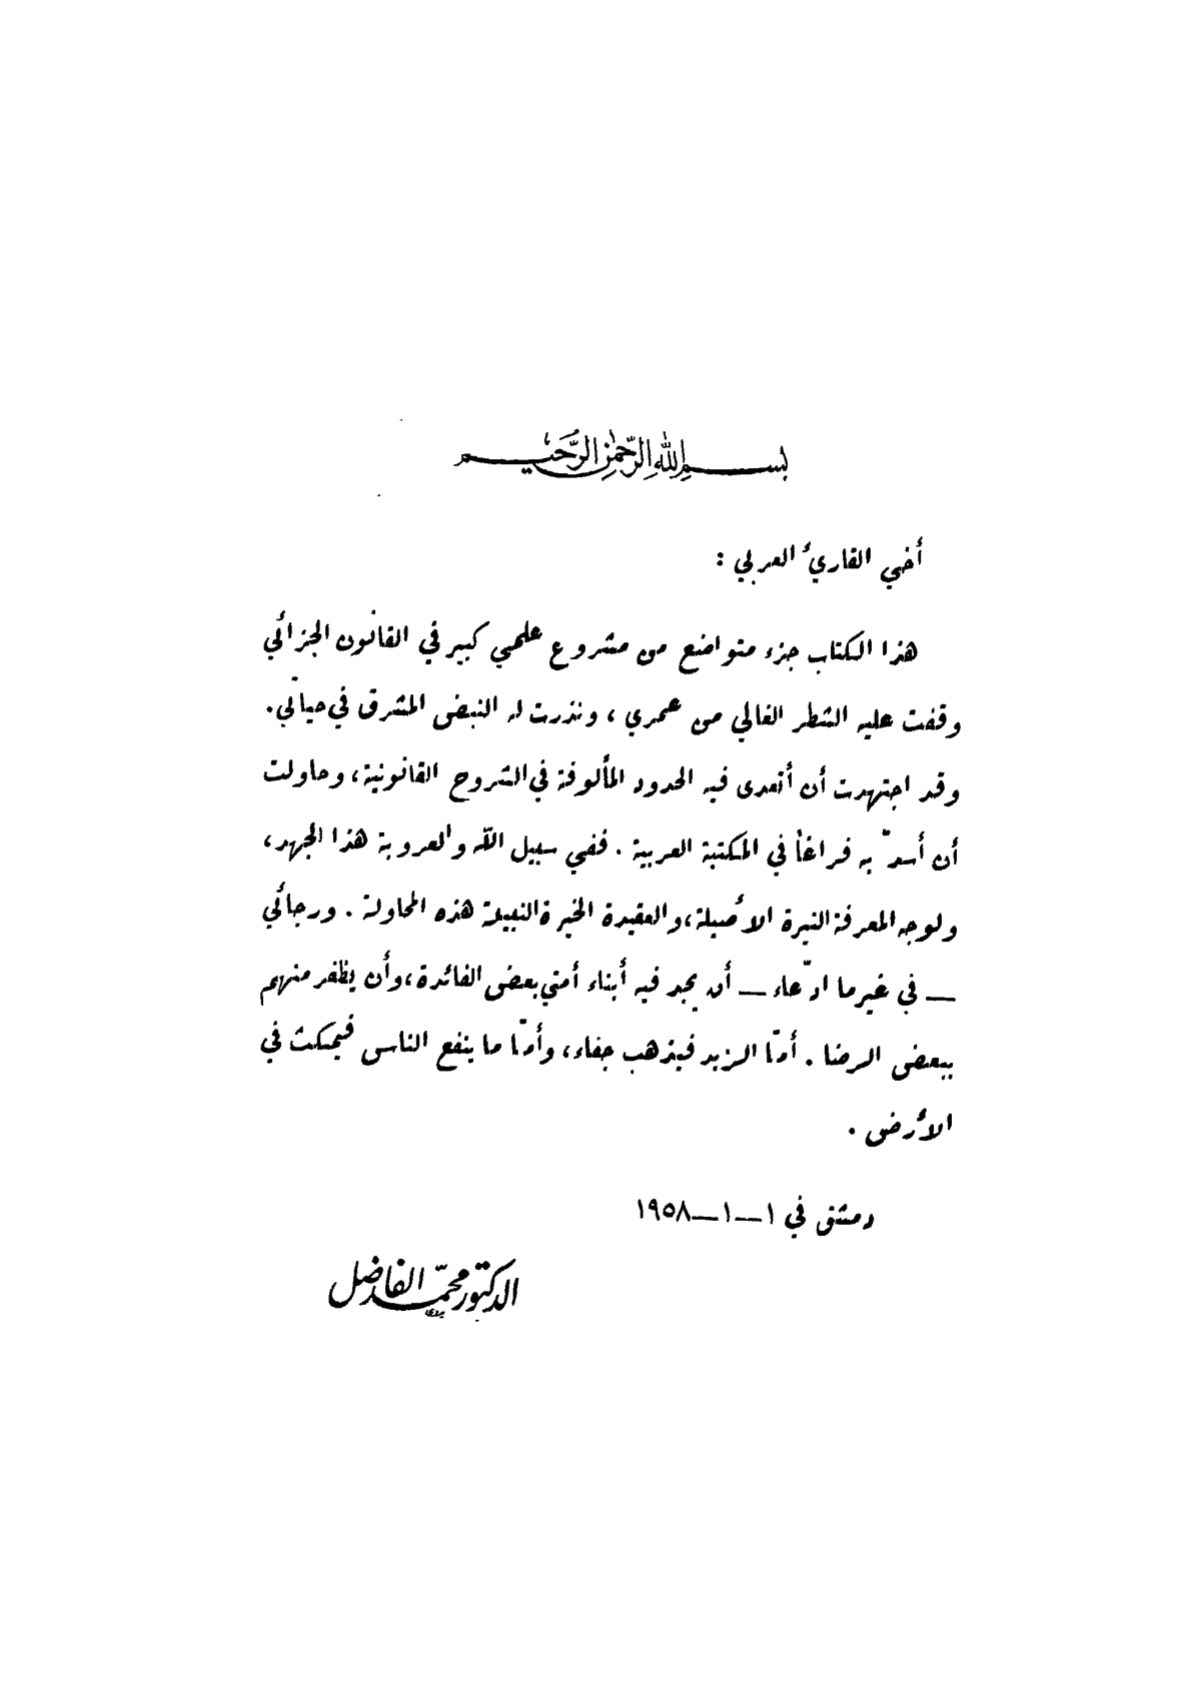 بسم الله الرحمن الرحيم
أخي القاريُ العربي :
هذا الكتاب جزء متواضع من مشروع علمي كبير في القانون الجزائي
وقفت عليه الشطر الغالي من عمري ، ونذرت له النبض المشرق في حياتي.
وقد اجتهدت أن أتعدى فيه الحدود المألوفة في الشروح القانونية، وحاولت
أن أسدّ به فراغاً في المكتبة العربية . ففي سبيل الله والعروبة هذا الجهد،
ولوجه المعرفة النيرة الأصيلة، والعقيدة الخيرة النبيلة هذه المحاولة . ورجائي
— في غير ما ادّعاء — أن يجد فيه أبناء أمتي بعض الفائدة، وأن يظفر منهم
ببعض الرضا . أمّا الزبد فيذهب جفاء، وأمّا ما ينفع الناس فيمكث في
الأرض .
دمشق في ١—١—١٩٥٨
الدكتور محمّد الفاضل